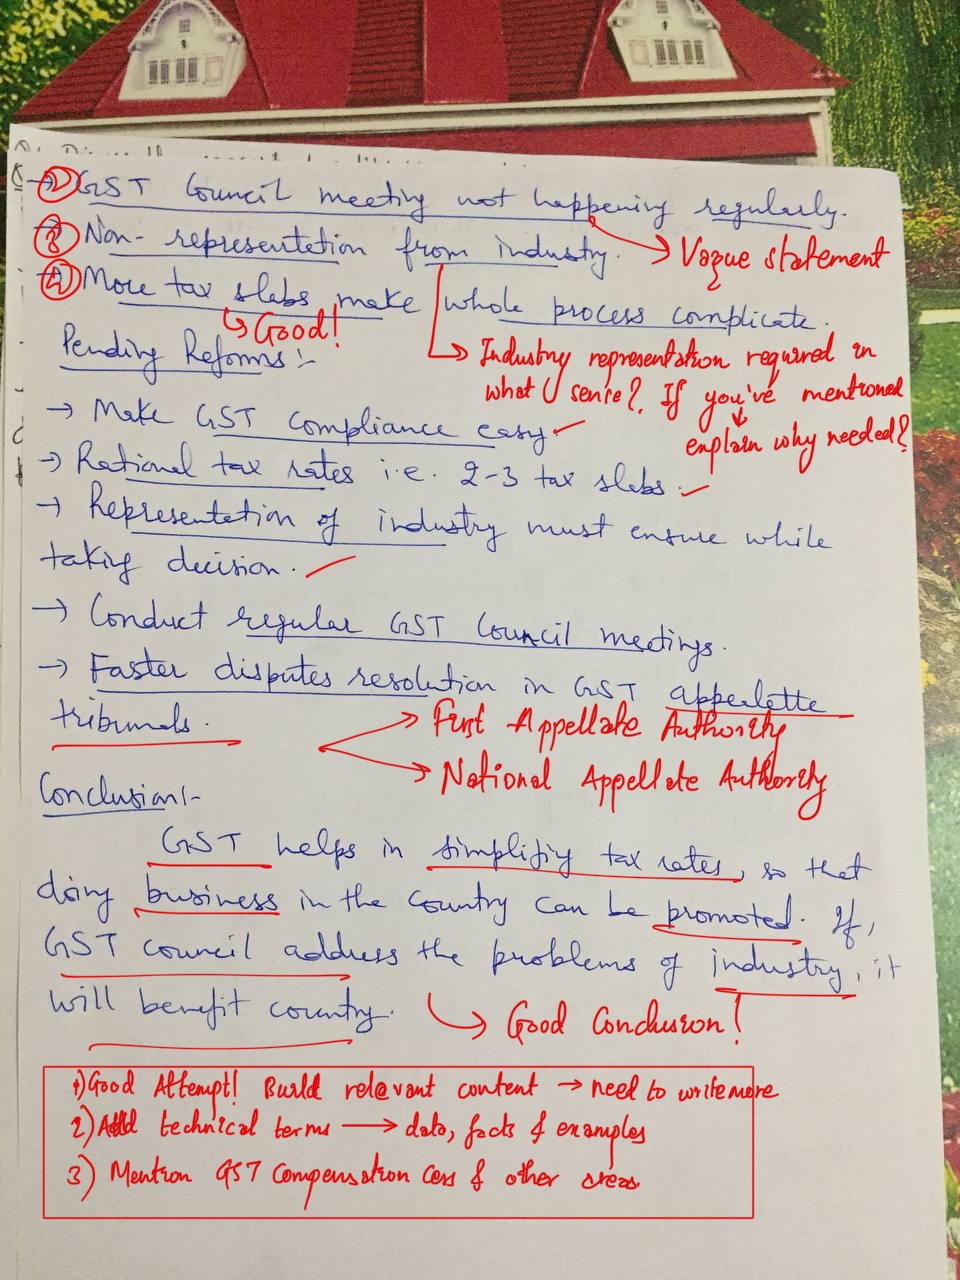 → ① GST Council meeting not happening regularly.
→ Vague statement
③ Non-representetion from industry.
④ More tax slabs make whole process complicate.
↳ Good!
→ Industry representation required in
what sense? If you've mentioned
explain why needed?
Pending Reforms:-
→ Make GST Compliance easy
→ Rational tax rates i.e. 2-3 tax slabs.
→ Representation of industry must ensure while
taking decision.
→ Conduct regular GST Council meetings.
→ Faster disputes resolution in GST appealette
tribunals.
→ First Appellate Authority
→ National Appellate Authority
Conclusion:-
GST helps in simplifiy tax rates, so that
doing business in the country can be promoted. If,
GST council address the problems of industry, it
will benefit country.
→ Good Conclusion!
1) Good Attempt! Build relevant content → need to write more
2) Add technical terms → data, facts & examples
3) Mention GST Compensation Cess & other areas